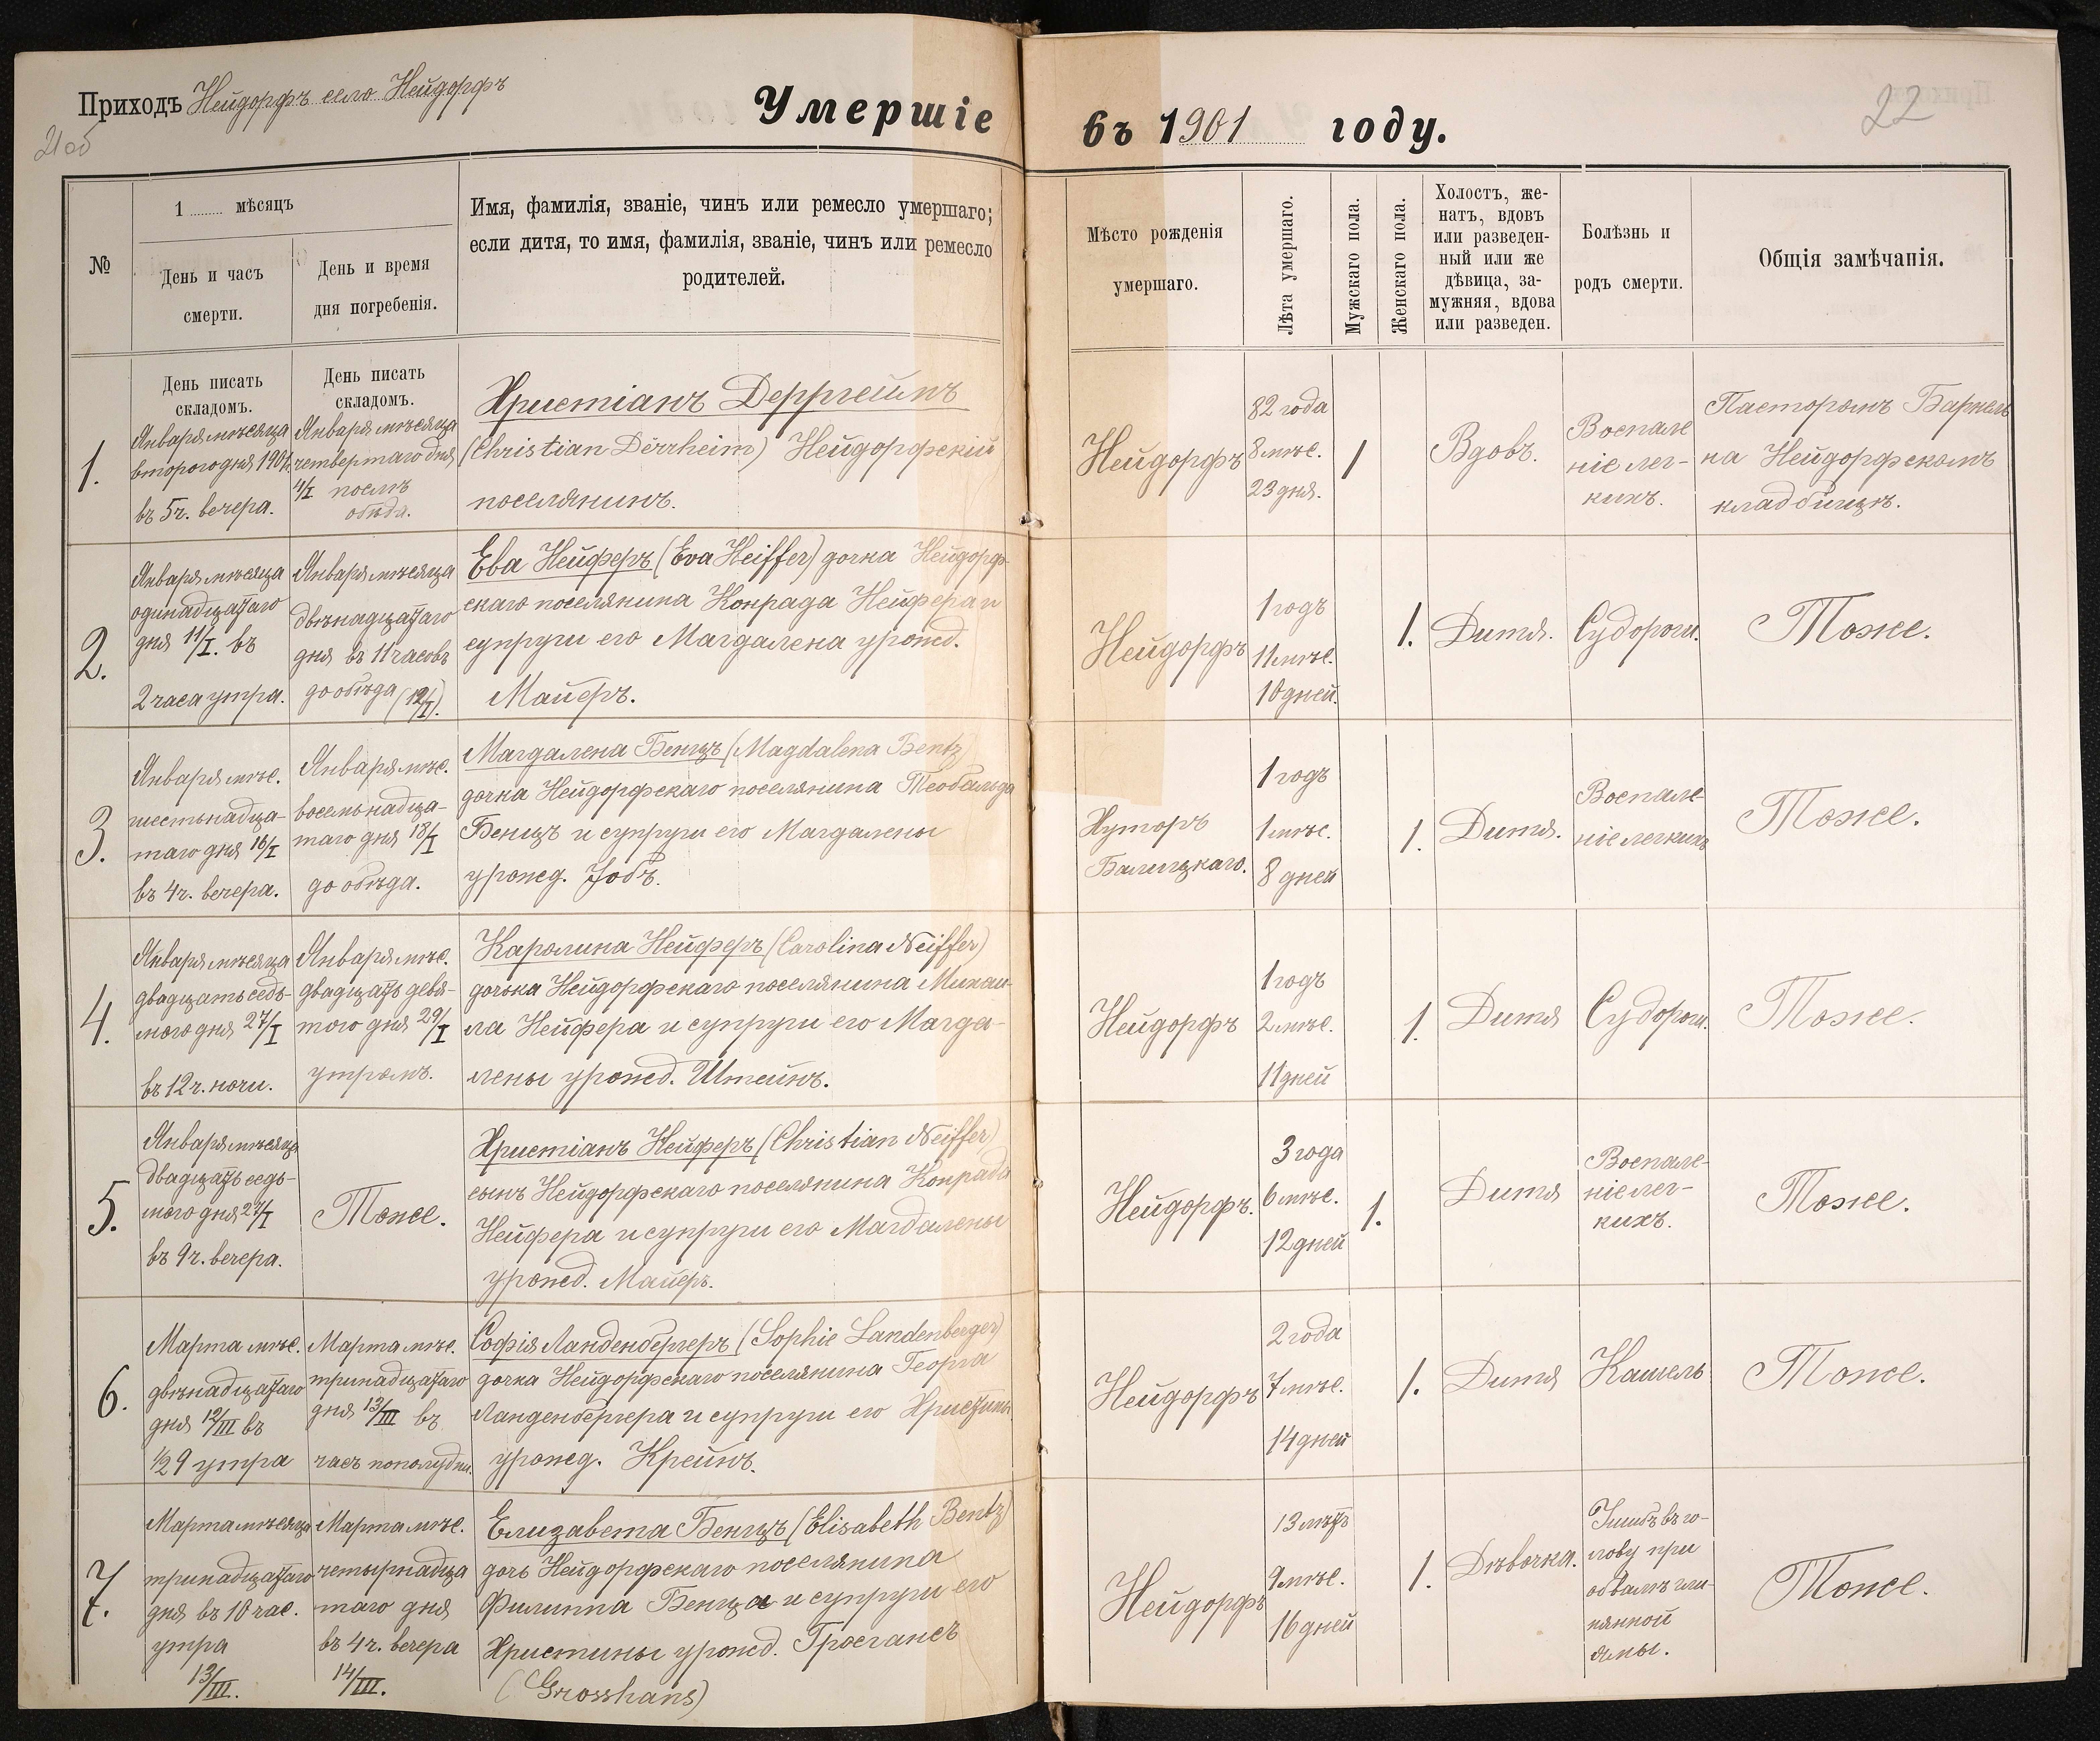 Приходъ Нейдорфъ село Нейдорфъ
21об
Умершіе
въ 1901 году.
22
№
1 мѣсяцъ
День и часъ
смерти.
День и время
дня погребенія.
Имя, фамилія, званіе, чинъ или ремесло умершаго;
если дитя, то имя, фамилія, званіе, чинъ или ремесло
родителей.
Мѣсто рожденія
умершаго.
Лѣта умершаго.
Мужскаго пола.
Женскаго пола.
Холостъ, же-
натъ, вдовъ
или разведен-
ный или же
дѣвица, за-
мужняя, вдова
или разведен.
Болѣзнь и
родъ смерти.
Общія замѣчанія.
1.
День писать
складомъ.
Января мѣсяца
второго дня 1901.
въ 5ч. вечера.
День писать
складомъ.
Января мѣсяца
четвертаго дня
4/I послѣ
обѣда.
Христіанъ Дерргеймъ
(Christian Dërrheim) Нейдорфскій
поселянинъ.
Нейдорфъ
82 года
8 мѣс.
23 дня.
1
Вдовъ.
Воспале
ніе лег-
кихъ.
Пасторомъ
на Нейдорфскомъ
кладбищѣ.
2.
Января мѣсяца
одинадцатаго
дня 11/I. въ
2 часа утра.
Января мѣсяца
двѣнадцатаго
дня въ 11 часовъ
до обѣда (12/I).
Ева Нейферъ (Eva Neiffer) дочка Нейдорф-
скаго поселянина Конрада Нейфера и
супруги его Магдалена урожд.
Майеръ.
Нейдорфъ
1 годъ
11 мѣс.
10 дней.
1.
Дитя.
Судороги.
Тоже.
3.
Января мѣс.
шестьнадца-
таго дня 16/I
въ 4ч. вечера.
Января мѣс.
восемьнадца-
таго дня 18/I
до обѣда.
Магдалена Бенцъ (Magdalena Bentz)
дочка Нейдорфскаго поселянина Теобальда
Бенцъ и супруги его Магдалены
урожд. Іобъ.
Хуторъ
Балицкаго.
1 годъ
1 мѣс.
8 дней
1.
Дитя.
Воспале-
ніе легкихъ
Тоже.
4.
Января мѣсяца
двадцать седь-
мого дня 27/I
въ 12ч. ночи.
Января мѣс.
двадцать девя-
того дня 29/I
утромъ.
Каролина Нейферъ (Carolina Neiffer)
дочька Нейдорфскаго поселянина Михаи-
ла Нейфера и супруги его Магда-
лены урожд. Штейнъ.
Нейдорфъ
1 годъ
2 мѣс.
11 дней
1.
Дитя
Судороги.
Тоже.
5.
Января мѣсяца
двадцать седь-
мого дня 27/I
въ 9ч. вечера.
Тоже.
Христіанъ Нейферъ (Christian Neiffer)
сынъ Нейдорфскаго поселянина Конрада
Нейфера и супруги его Магдалены
урожд. Майеръ.
Нейдорфъ.
3 года
6 мѣс.
12 дней
1.
Дитя
Воспале-
ніе лег-
кихъ.
Тоже.
6.
Марта мѣс.
двѣнадцатаго
дня 12/III въ
1/2 9 утра
Марта мѣс.
тринадцатаго
дня 13/III въ
часъ пополудни.
Софія Ланденбергеръ (Sophie Landenberger)
дочка Нейдорфскаго поселянина Георга
Ланденбергера и супруги его Христины
урожд. Крейнъ.
Нейдорфъ
2 года
7 мѣс.
14 дней
1.
Дитя
Кашель
Тоже.
7.
Марта мѣсяца
тринадцатаго
дня въ 10 час.
утра
13/III.
Марта мѣс.
четырнадца
таго дня
въ 4ч. вечера
14/III.
Елизавета Бенцъ (Elisabeth Bentz)
дочь Нейдорфскаго поселянина
Филиппа Бенца и супруги его
Христины урожд. Гросгансъ
(Grosshans)
Нейдорфъ
13 лѣтъ
9 мѣс.
16 дней
1.
Дѣвочка.
Ушибъ въ го-
лову при
обвалѣ гли-
нянной
ямы.
Тоже.